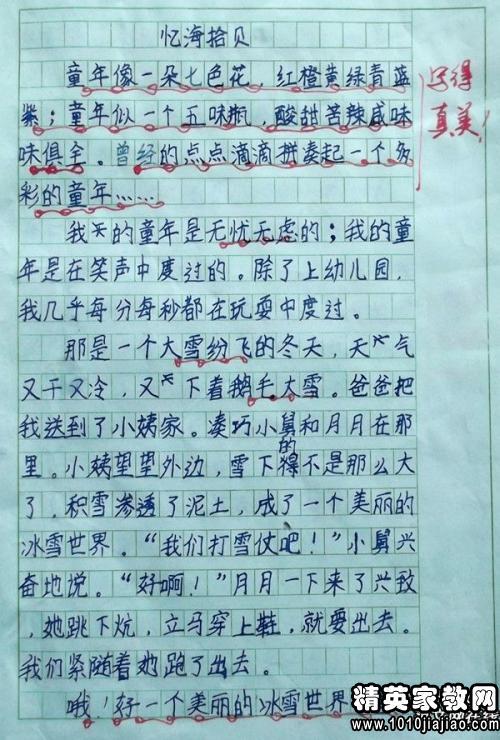 忆海拾贝
童年像一朵七色花，红橙黄绿青蓝
紫；童年似一个五味瓶，酸甜苦辣咸味
味俱全。曾经的点点滴滴拼凑起一个多
彩的童年……
写得
真美！
我的童年是无忧无虑的；我的童
年是在笑声中度过的。除了上幼儿园，
我几乎每分每秒都在玩耍中度过。
那是一个大雪纷飞的冬天，天气
又干又冷，又下着鹅毛大雪。爸爸把
我送到了小姨家。凑巧小舅和月月在那
里。小姨望望外边，雪下的不是那么大
了，积雪渗透了泥土，成了一个美丽的
冰雪世界。“我们打雪仗吧！”小舅兴
奋地说。“好啊！”月月一下来了兴致
，她跳下炕，立马穿上鞋，就要出去。
我们紧随着她跑了出去。
哦！好一个美丽的冰雪世界
精英家教网
www.1010jiajiao.com